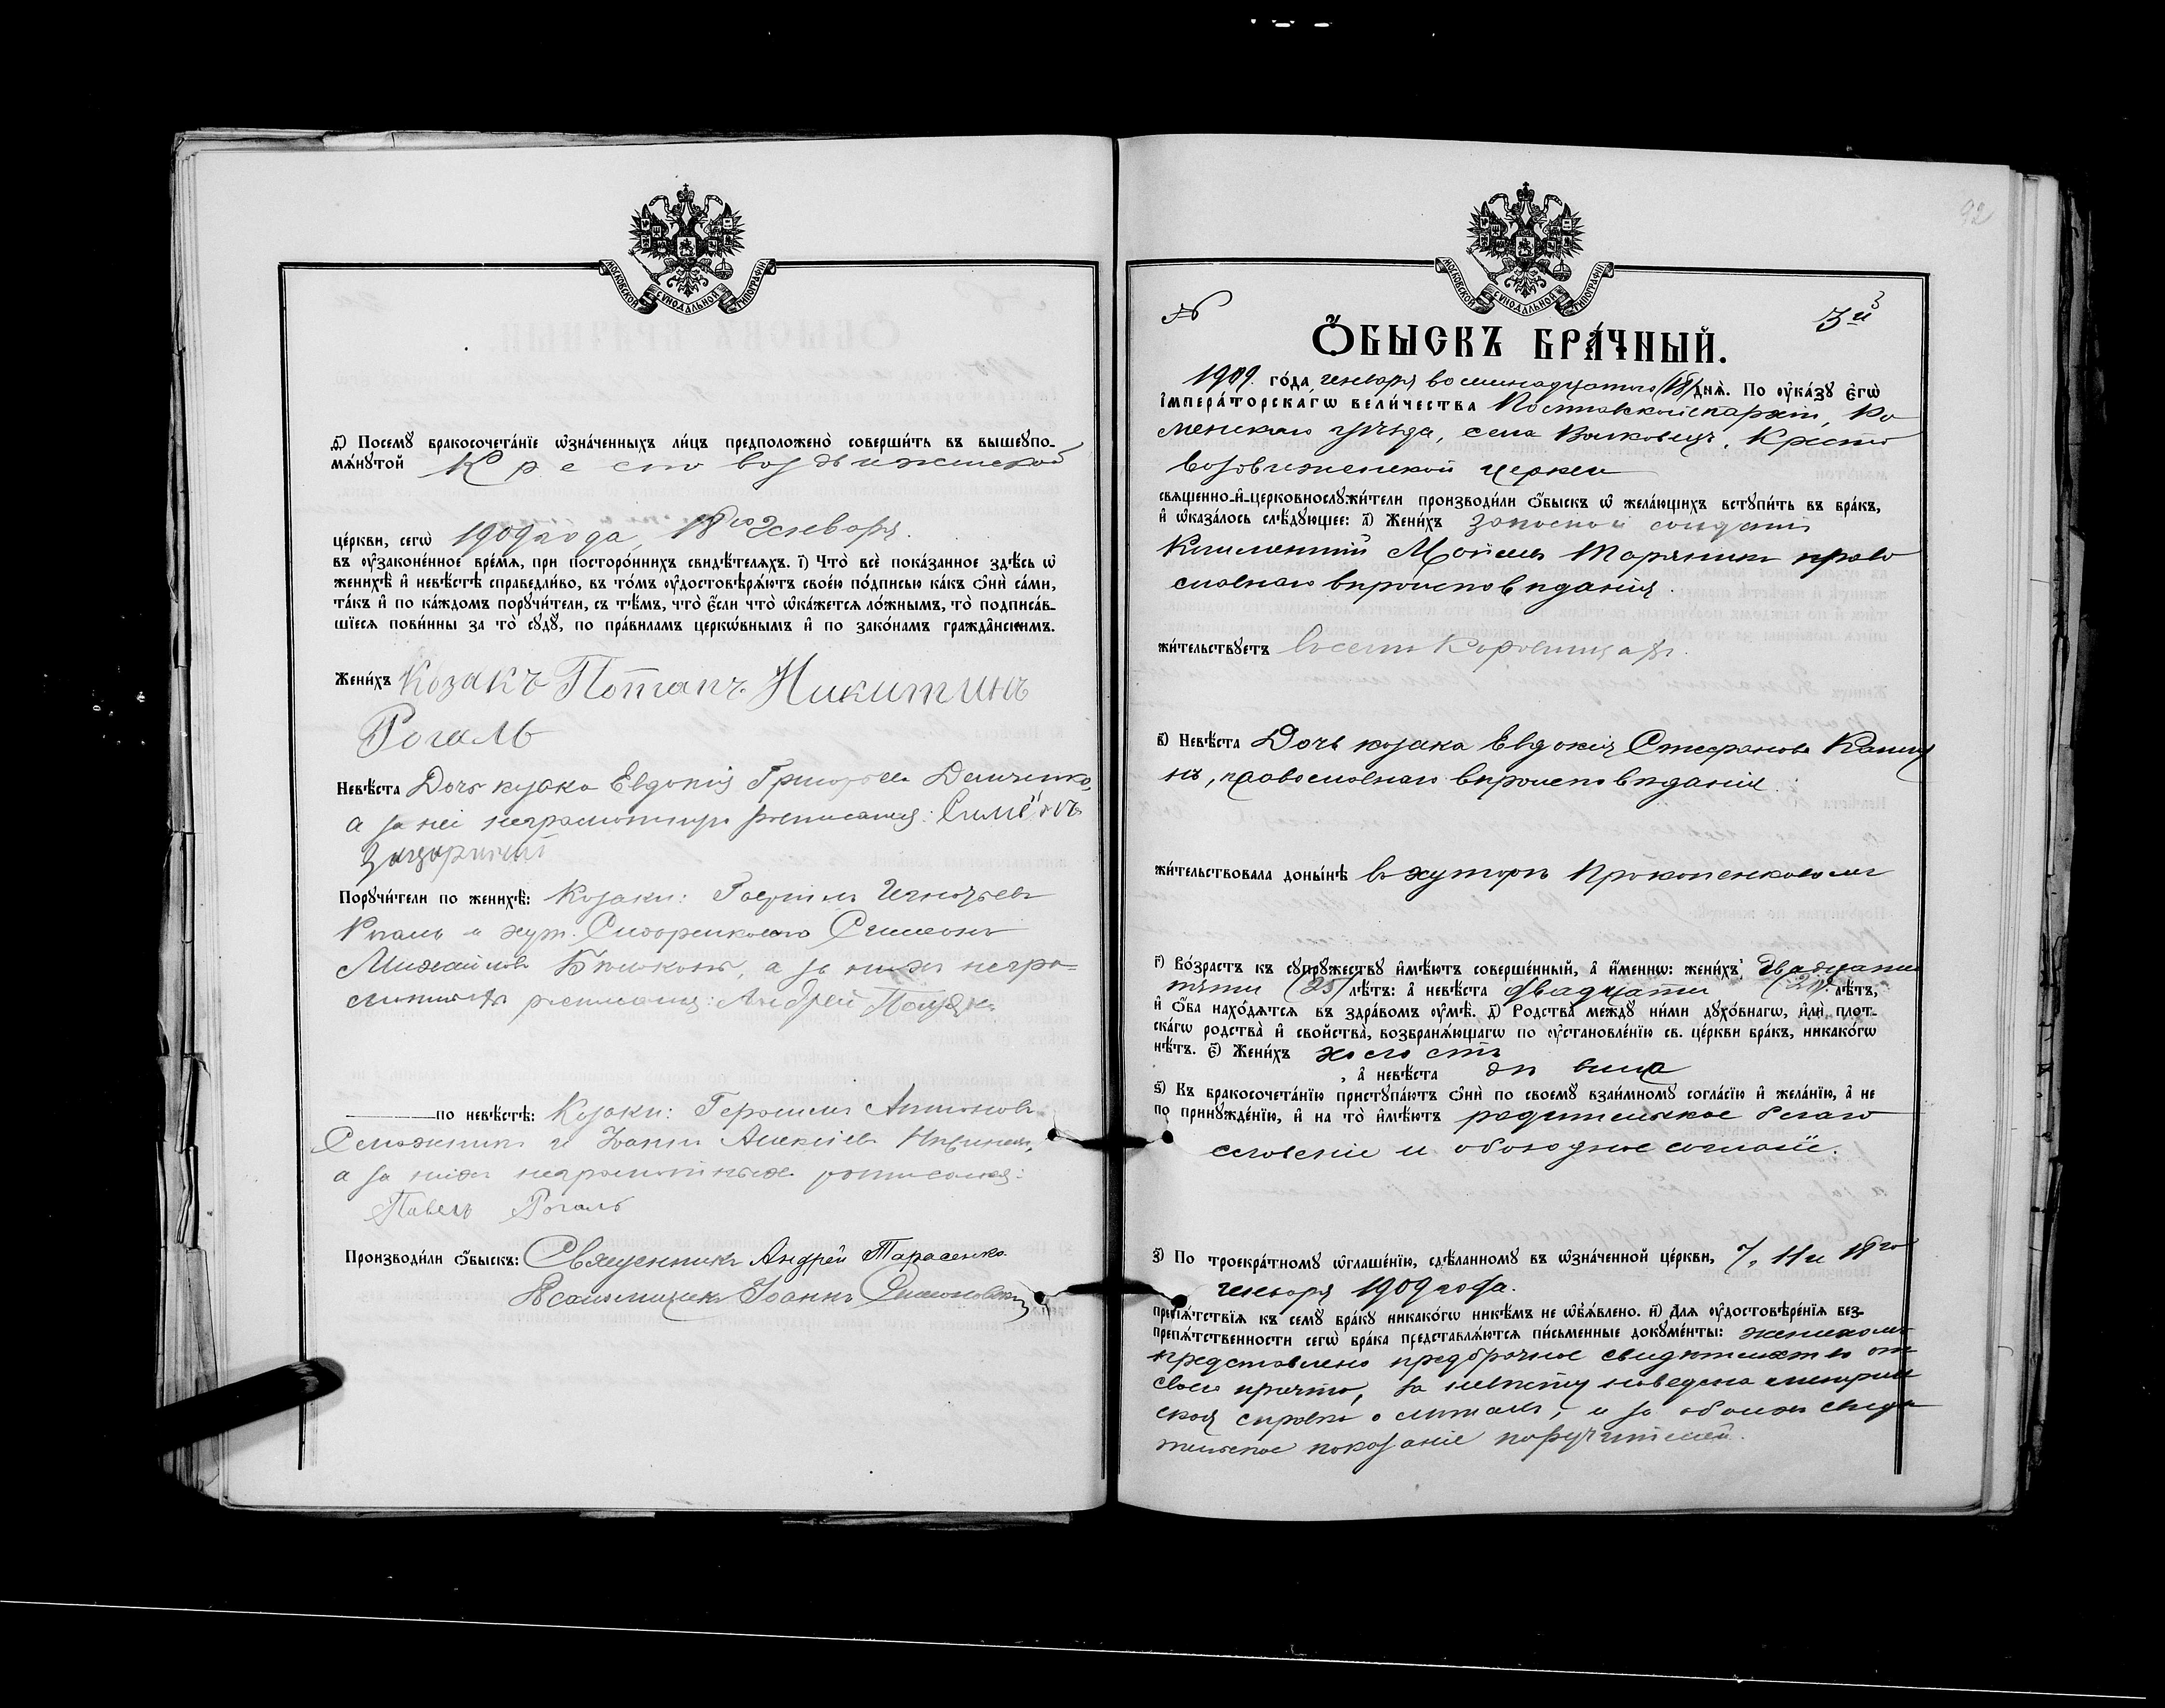 МОСКОВСКОЙ СѴНОДАЛЬНОЙ ТИПОГРАФІИ
д҃) Посемꙋ бракосочета́нїе ѡзна́ченныхъ ли́цъ предположено̀ соверши́ть въ вышеꙋпо-
мѧ́нꙋтой Крестовоздвиженской
це́ркви, сегѡ̀ 1909 года, 18го Генваря.
въ ᲂу҆зако́не́нное вре́мѧ, при посторо́ннихъ свидѣ́телѧхъ. і҃) Что̀ всѐ пока́занное здѣ́сь ѡ҆
женихѣ̀ и҆ невѣ́стѣ справедли́во, въ то́мъ ᲂу҆достовѣрѧ́ютъ свое́ю по́дписью ка́къ ѻ҆нѝ са́ми,
та́къ и҆ по ка́ждомъ порꙋчи́тели, съ тѣ́мъ, что̀ є҆́сли что̀ ѡ҆ка́жетсѧ ло́жнымъ, то̀ подписа́в-
шїесѧ пови́нны за то̀ сꙋдꙋ̀, по пра́виламъ церкѡ́внымъ и҆ по зако́намъ гражда̂нскимъ.
Жени́хъ Козакъ Потапъ Никитинъ
Рогаль
Невѣ́ста Дочь козака Евдокія Григорьева Демченко,
а за неё неграмотную росписался: Симёнъ
Порꙋчи́тели по женихѣ̀: Козаки: Гавріилъ Игнатьевъ
Рогаль и хут. Сидоренкового Симеонъ
Михайловъ а за нихъ негра=
мотныхъ росписался: Андрей
по невѣ́стѣ: Козаки: Герасимъ Антоновъ
и Іоаннъ Алексѣевъ
а за нихъ неграмотныхъ росписался:
Павелъ Рогаль
Производи́ли ѻ҆́быскъ: Священникъ Андрей Тарасенко
Псаломщикъ Іоаннъ Симоновскій
92
МОСКОВСКОЙ СѴНОДАЛЬНОЙ ТИПОГРАФІИ
№ 3й 3
Ѻ҆́БЫСКЪ БРА́ЧНЫЙ.
1909 го́да, генваря восемнадцатого (18) днѧ̀. По ᲂу҆ка́зꙋ є҆гѡ̀
і҆мпера́торскагѡ вели́чества Полтавской епархіи, Ро
менского уѣзда, села Волковецъ, Кресто
воздвиженской церкви
свѧще́нно-и҆-церковнослꙋжи́тели производи́ли ѻ҆́быскъ ѡ҆ жела́ющихъ встꙋпи́ть въ бра́къ,
и҆ ѡ҆каза́лось слѣ́дꙋющее: а҃) Жени́хъ запасной солдатъ
Климентій Мойсеевъ Торяникъ право
славнаго вѣроисповѣданія.
жи́тельствꙋетъ въ селѣ Коровинцахъ.
в҃) Невѣ́ста Дочь козака Евдокія Стефанова
православнаго вѣроисповѣданія.
жи́тельствовала доны́нѣ въ хуторѣ Прокопенковомъ
г҃) Во́зрастъ къ сꙋпрꙋ́жествꙋ и҆мѣ́ютъ соверше́нный, а҆ и҆́меннѡ: жени́хъ двадцати
пяти (25) лѣ́тъ: а҆ невѣ́ста двадцати лѣ́тъ,
и҆ ѻ҆́ба нахо́дѧтсѧ въ здра́вомъ ᲂу҆мѣ̀. д҃) Родства̀ междꙋ̀ ни́ми дꙋхо́внагѡ, и҆лѝ плот-
ска́гѡ родства̀ и҆ сво́йства̀, возбранѧ́ющагѡ по ᲂу҆становле́нїю св. це́ркви бра́къ, никако́гѡ
нѣ́тъ. є҃) Жени́хъ холостъ
, а҆ невѣ́ста дѣвица
ѕ҃) Къ бракосочета́нїю пристꙋпа́ютъ ѻ҆нѝ по своемꙋ̀ взаи́мномꙋ согла́сїю и҆ жела́нїю, а҆ не
по принꙋжде́нїю, и҆ на то̀ и҆мѣ́ютъ родительское благо
словеніе и обоюдное согласіе.
з҃) По троекра́тномꙋ ѡ҆глаше́нїю, сдѣ́ланномꙋ въ ѡ҆зна́ченной це́ркви, 7, 11 и 18го
генваря 1909 года.
препѧ́тствїѧ къ семꙋ̀ бра́кꙋ никако́гѡ никѣ́мъ не ѡ҆б̾ѧ́влено. и҃) Длѧ ᲂу҆достовѣре́нїѧ без-
препѧ́тственности сегѡ̀ бра́ка представлѧ́ютсѧ пи́сьменные докꙋме́нты: женихомъ
представлено предбрачное свидѣтельство отъ
своего причта, за невѣсту наведена метриче
ская справка о лѣтахъ, и за обоихъ свидѣ
тельское показаніе поручителей.